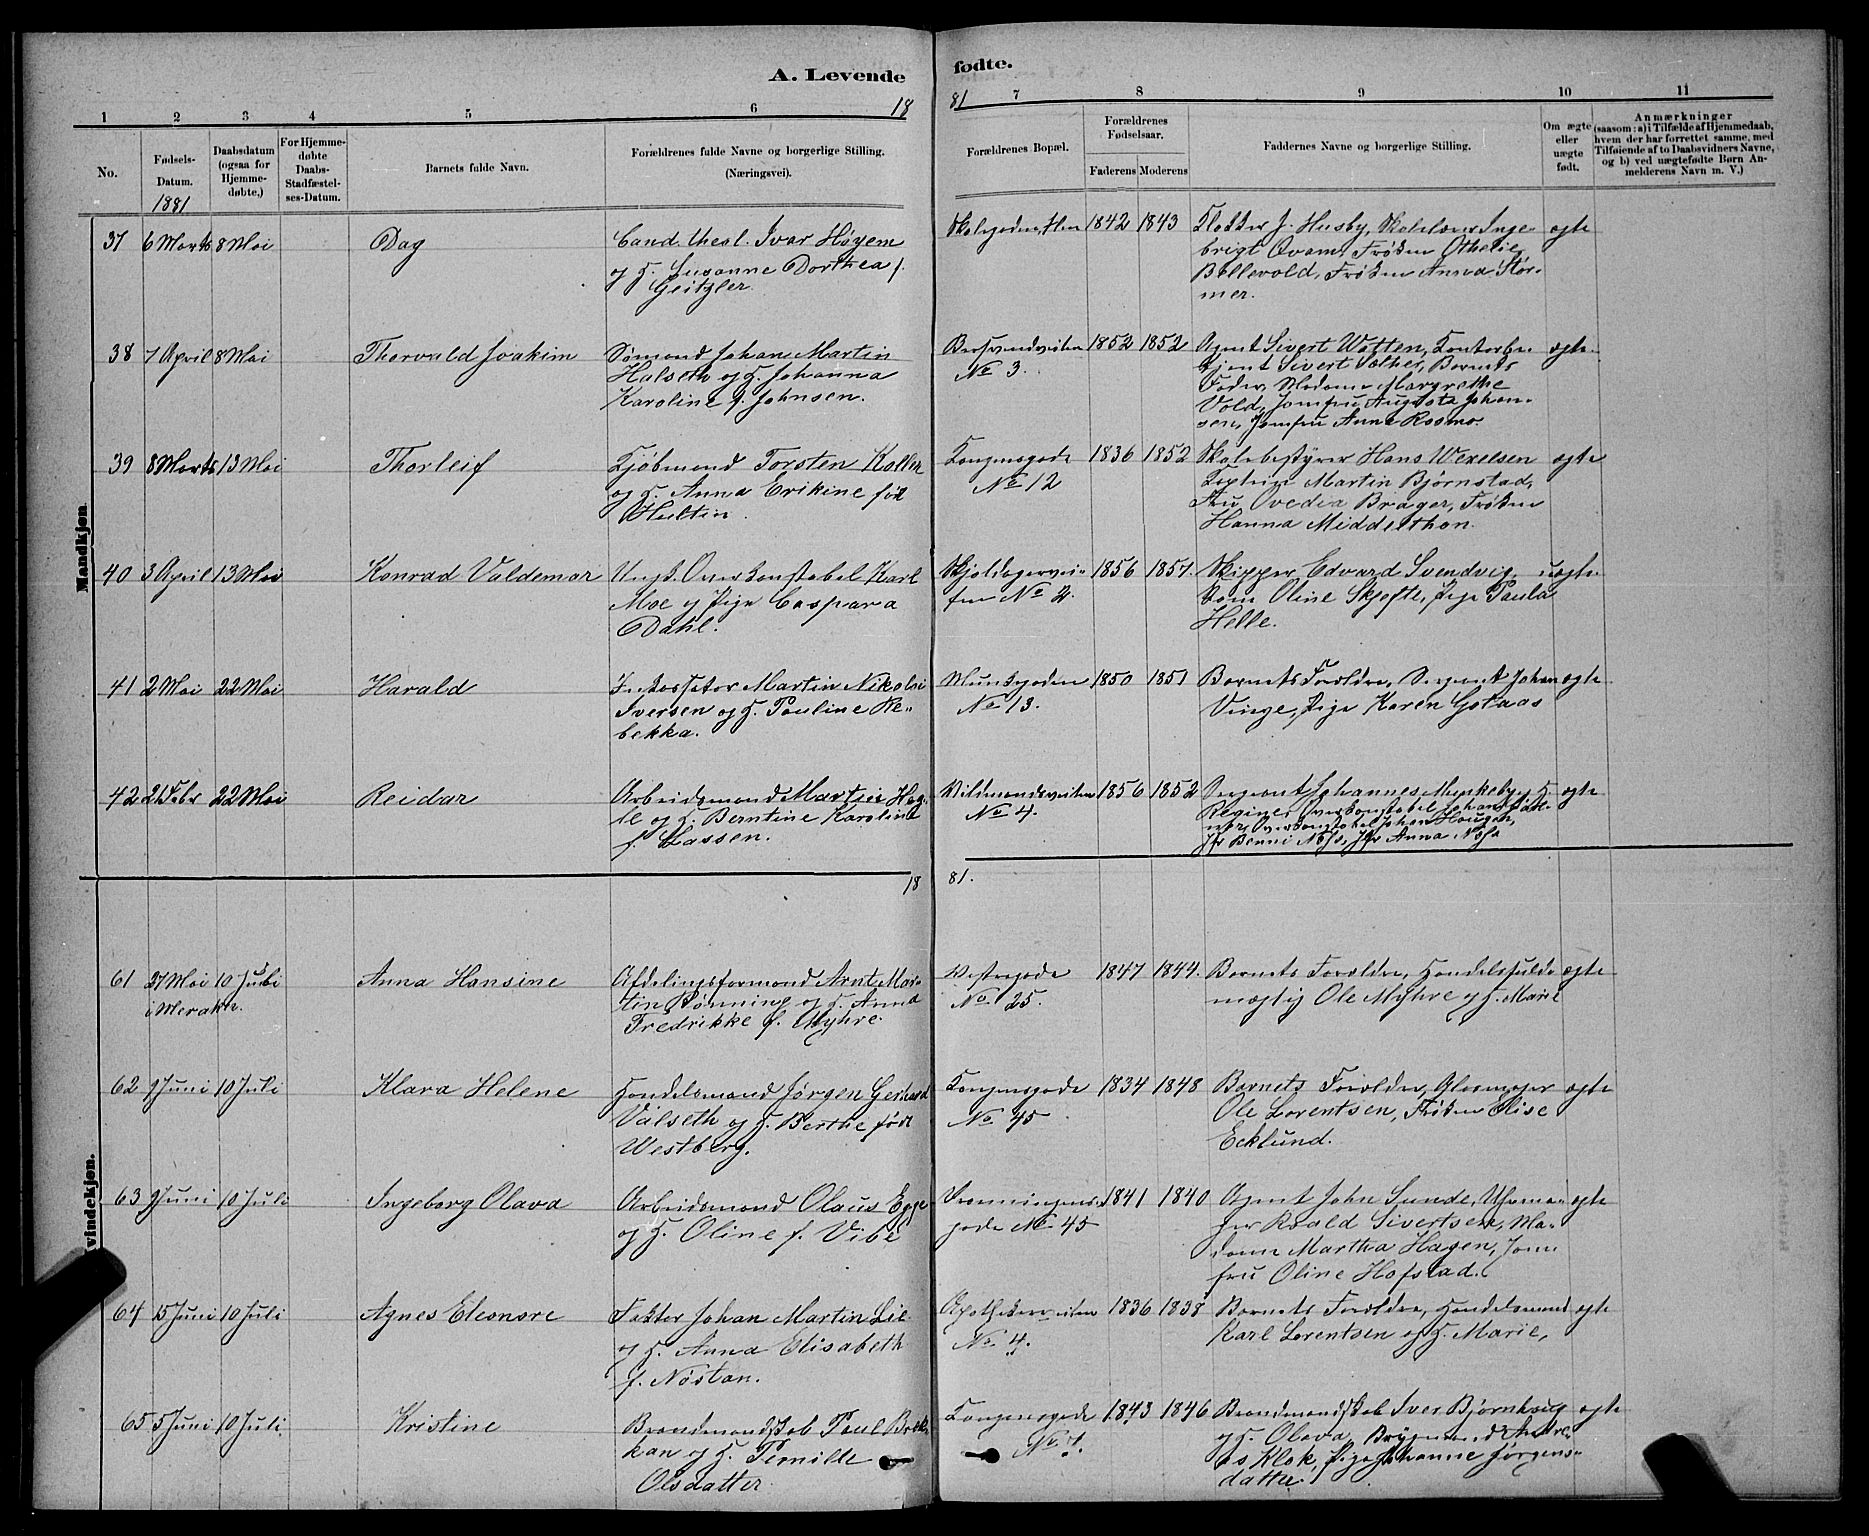 A. Levende
18
1 2 3 4 5 6
No.
Fødsels-
Datum.
1881
Daabsdatum
(ogsaa for
Hjemme-
døbte,)
For Hjemme-
døbte
Daabs-
Stadfæstel-
ses-Datum.
Barnets fulde Navn.
Forældrenes fulde Navne og borgerlige Stilling.
(Næringsvei).
Mandkjøn.
37 6 Marts 8 Mai Dag Cand. theol. Ivar Høyem
og H. Susanne Dorthea f.
Geitzler.
38 7 April 8 Mai Thorvald Joakim Sømand Johan Martin
Halseth og H. Johanna
Karoline f. Johnsen.
39 8 Marts 13 Mai Thorleif Kjøbmand Torsten Koller
og H. Anna Erikine født
Hultin.
40 3 April 13 Mai Konrad Valdemar Ungk. Overkonstabel Karl
Moe og Pige Caspara
Dahl.
41 2 Mai 22 Mai Harald Inkassator Martin Nikolai
Iversen og H. Pauline Re-
bekka.
42 21 Febr 22 Mai Reidar Arbeidsmand Martin
og H. Berntine Karoline
f. Lassen.
18
Kvindekjøn.
61 27 Mai 10 Juli Anna Hansine Afdelingsformand Arnt Mar-
i Meraker.
tin Rønning og H. Anna
Fredrikke f. Myhre.
62 9 Juni 10 Juli Klara Helene Handelsmand Jørgen Gerhard
Valseth og H. Berthe født
Westberg.
63 9 Juni 10 Juli Ingeborg Olava Arbeidsmand Olaus Egge
og H. Oline f. Vibe
64 15 Juni 10 Juli Agnes Eleonore Faktor Johan Martin Lie
og H. Anna Elisabeth
f. Nøstan.
65 5 Juni 10 Juli. Kristine Brandmandskab Paul Brek-
kan og H. Pernille
Olsdatter
fødte.
81
7 8 9 10 11
Forældrenes Bopæl.
Forældrenes
Fødselsaar.
Faderens Moderens
Faddernes Navne og borgerlige Stilling.
Om ægte
eller
uægte
født.
Anmærkninger
(saasom: a) i Tilfælde af Hjemmedaab,
hvem der har forrettet samme, med
Tilføiende af to Daabsvidners Navne,
og b) ved uægtefødte Børn An-
melderens Navn m. V.)
1842 1843 Klokker J. Husby, Skolelærer Inge- ægte
brigt Qvam, Frøken Othelie
Bellevold, Frøken Anna Stør-
mer.
1852 1852 Agent Sivert Watten, Kontorbe- ægte
No 3. tjent Sivert Sæther, Barnets
Fader, Madame Margrethe
Vold, Jomfru Augusta Johan-
sen, Jomfru Anna Rosmo.
Kongensgade 1836 1852 Skolebestyrer Hans Wexelsen ægte
No 12 Kaptein Martin Bjørnstad,
Fru Ovedia Brager, Frøken
Hanna Middelthon.
1856 1857. Skipper Edvard Svendvig, uægte
No 2. Kone Oline Skjefte, Pige Paula
Helle.
Munkegaden 1850 1851 Barnets Forældre, Sergeant Johan ægte
No 13. Vinge, Pige Karen Gotaas
Vildmandsveiten 1856 1852 Sergeant Johannes Munkeby og H. ægte
No 4. Regine, Overkonstabel Johan
Overkonstabel Johan Haugan,
Jfr Benni Næss, Jfr Anna Næss
81.
Vestregade 1847 1844. Barnets Forældre, Handelsfuld- ægte
No 25. mægtig Ole Myhre og H. Marie
Kongensgade 1834 1848 Barnets Forældre, Glasmager ægte
No 45 Ole Lorentsen, Frøken Elise
Ecklund.
Dronningens- 1841 1840 Agent John Sunde, Uhrma- ægte
gade No 45 ger Roald Sivertsen, Ma-
dame Martha Hagen, Jom-
fru Oline Hofstad.
Apothekerveiten 1836 1838 Barnets Forældre, Handelsmand ægte
No 4. Karl Lorentsen og H. Marie,
Kongensgade 1843 1846 Brandmandskab Iver Bjørnhaug ægte
og H. Olava, Andre-
as Klok, Pige Johanne Jørgens-
datter.